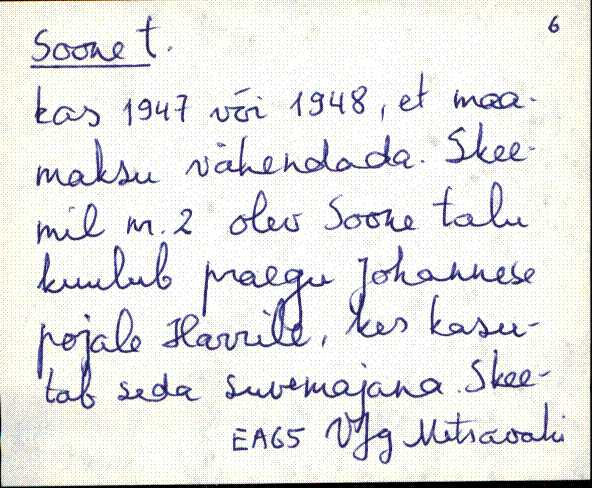 6
Soone t.
kas 1947 või 1948, et maa-
maksu vähendada. Skee-
mil nr. 2 olev Soone talu
kuulub praegu Johannese
pojale Harrile, kes kasu-
tab seda suvemajana. Skee-
EA65 VJg Metsavahi